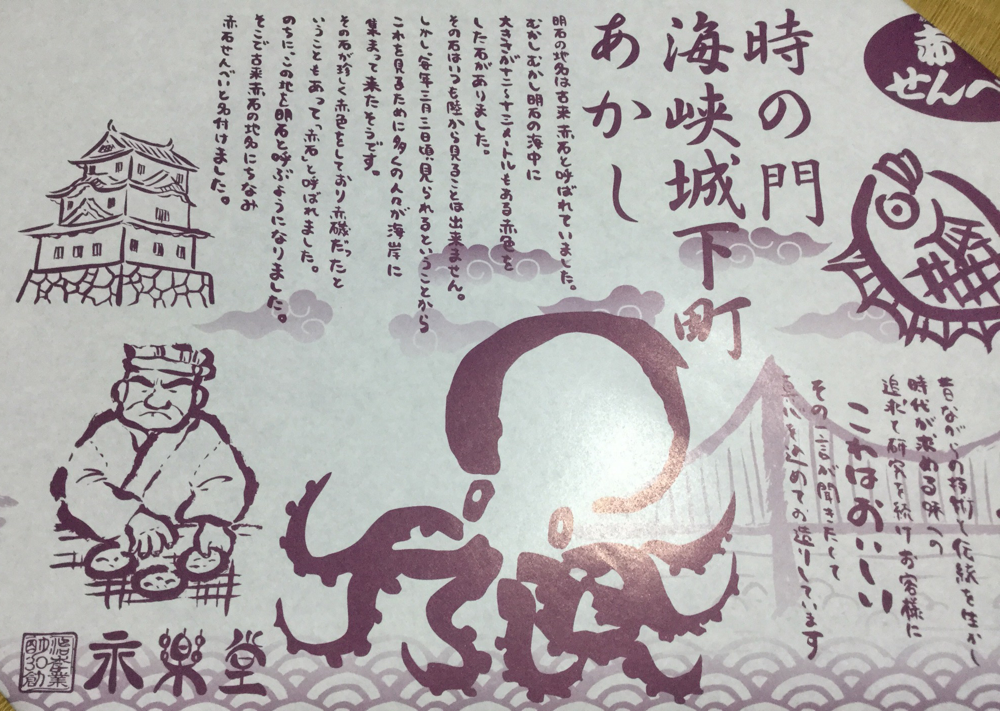 赤
せんべ
時の門
海峡城下町
あかし
明石の地名は古来 赤石と呼ばれていました。
むかし、むかし明石の海中に
大きさが十二〜十三メートルもある赤色を
した石がありました。
その石はいつも陸から見ることは出来ません。
しかし、毎年三月三日頃、見られるということから
これを見るために多くの人々が海岸に
集まって来たそうです。
その石が珍しく赤色をしており 赤磯だったと
いうこともあって「赤石」と呼ばれました。
のちに、この地を明石と呼ぶようになりました。
そこで古来赤石の地名にちなみ
赤石せんべいと名付けました。
昔ながらの技術と伝統を生かし
時代が求める味への
追求と研究を続け お客様に
これはおいしい
その一言が聞きたくて
真心を込めてお造りしています
永楽堂